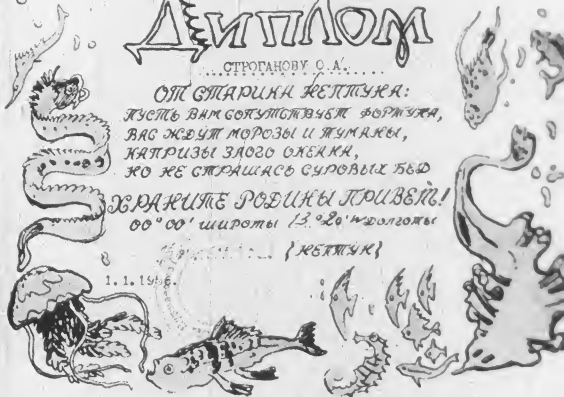 Диплом
СТРОГАНОВУ О.А.
ОТ СТАРИНА НЕПТУНА:
ПУСТЬ ВАМ СОПУТСТВУЕТ ФОРТУНА,
ВАС ЖДУТ МОРОЗЫ И ТУМАНЫ,
КАПРИЗЫ ЗЛОГО ОКЕАНА,
НО НЕ СТРАШАСЬ СУРОВЫХ БЕД
ХРАНИТЕ РОДИНЫ ПРИВЕТ!
00°00' широты 13°20' W долготы
{НЕПТУН}